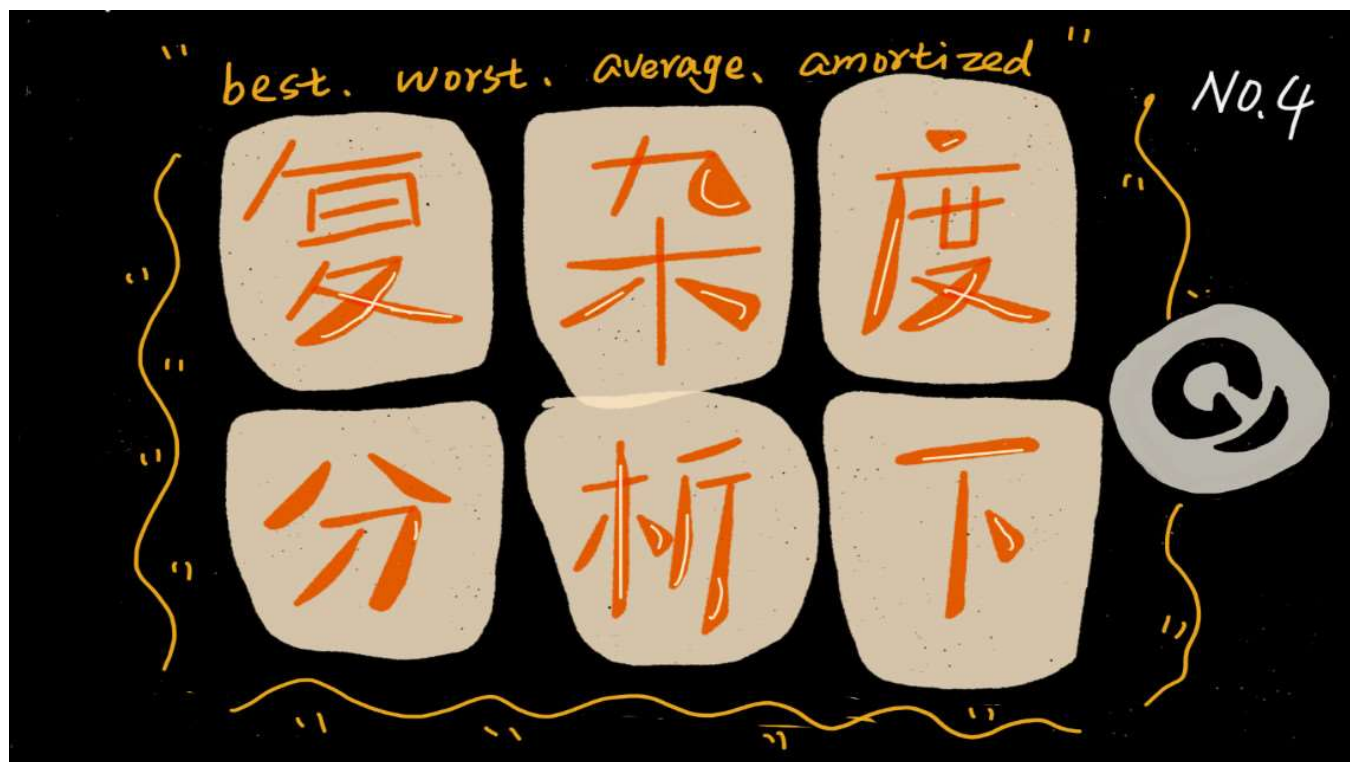 best. worst. average、amortized
No.4
复杂度
分析下